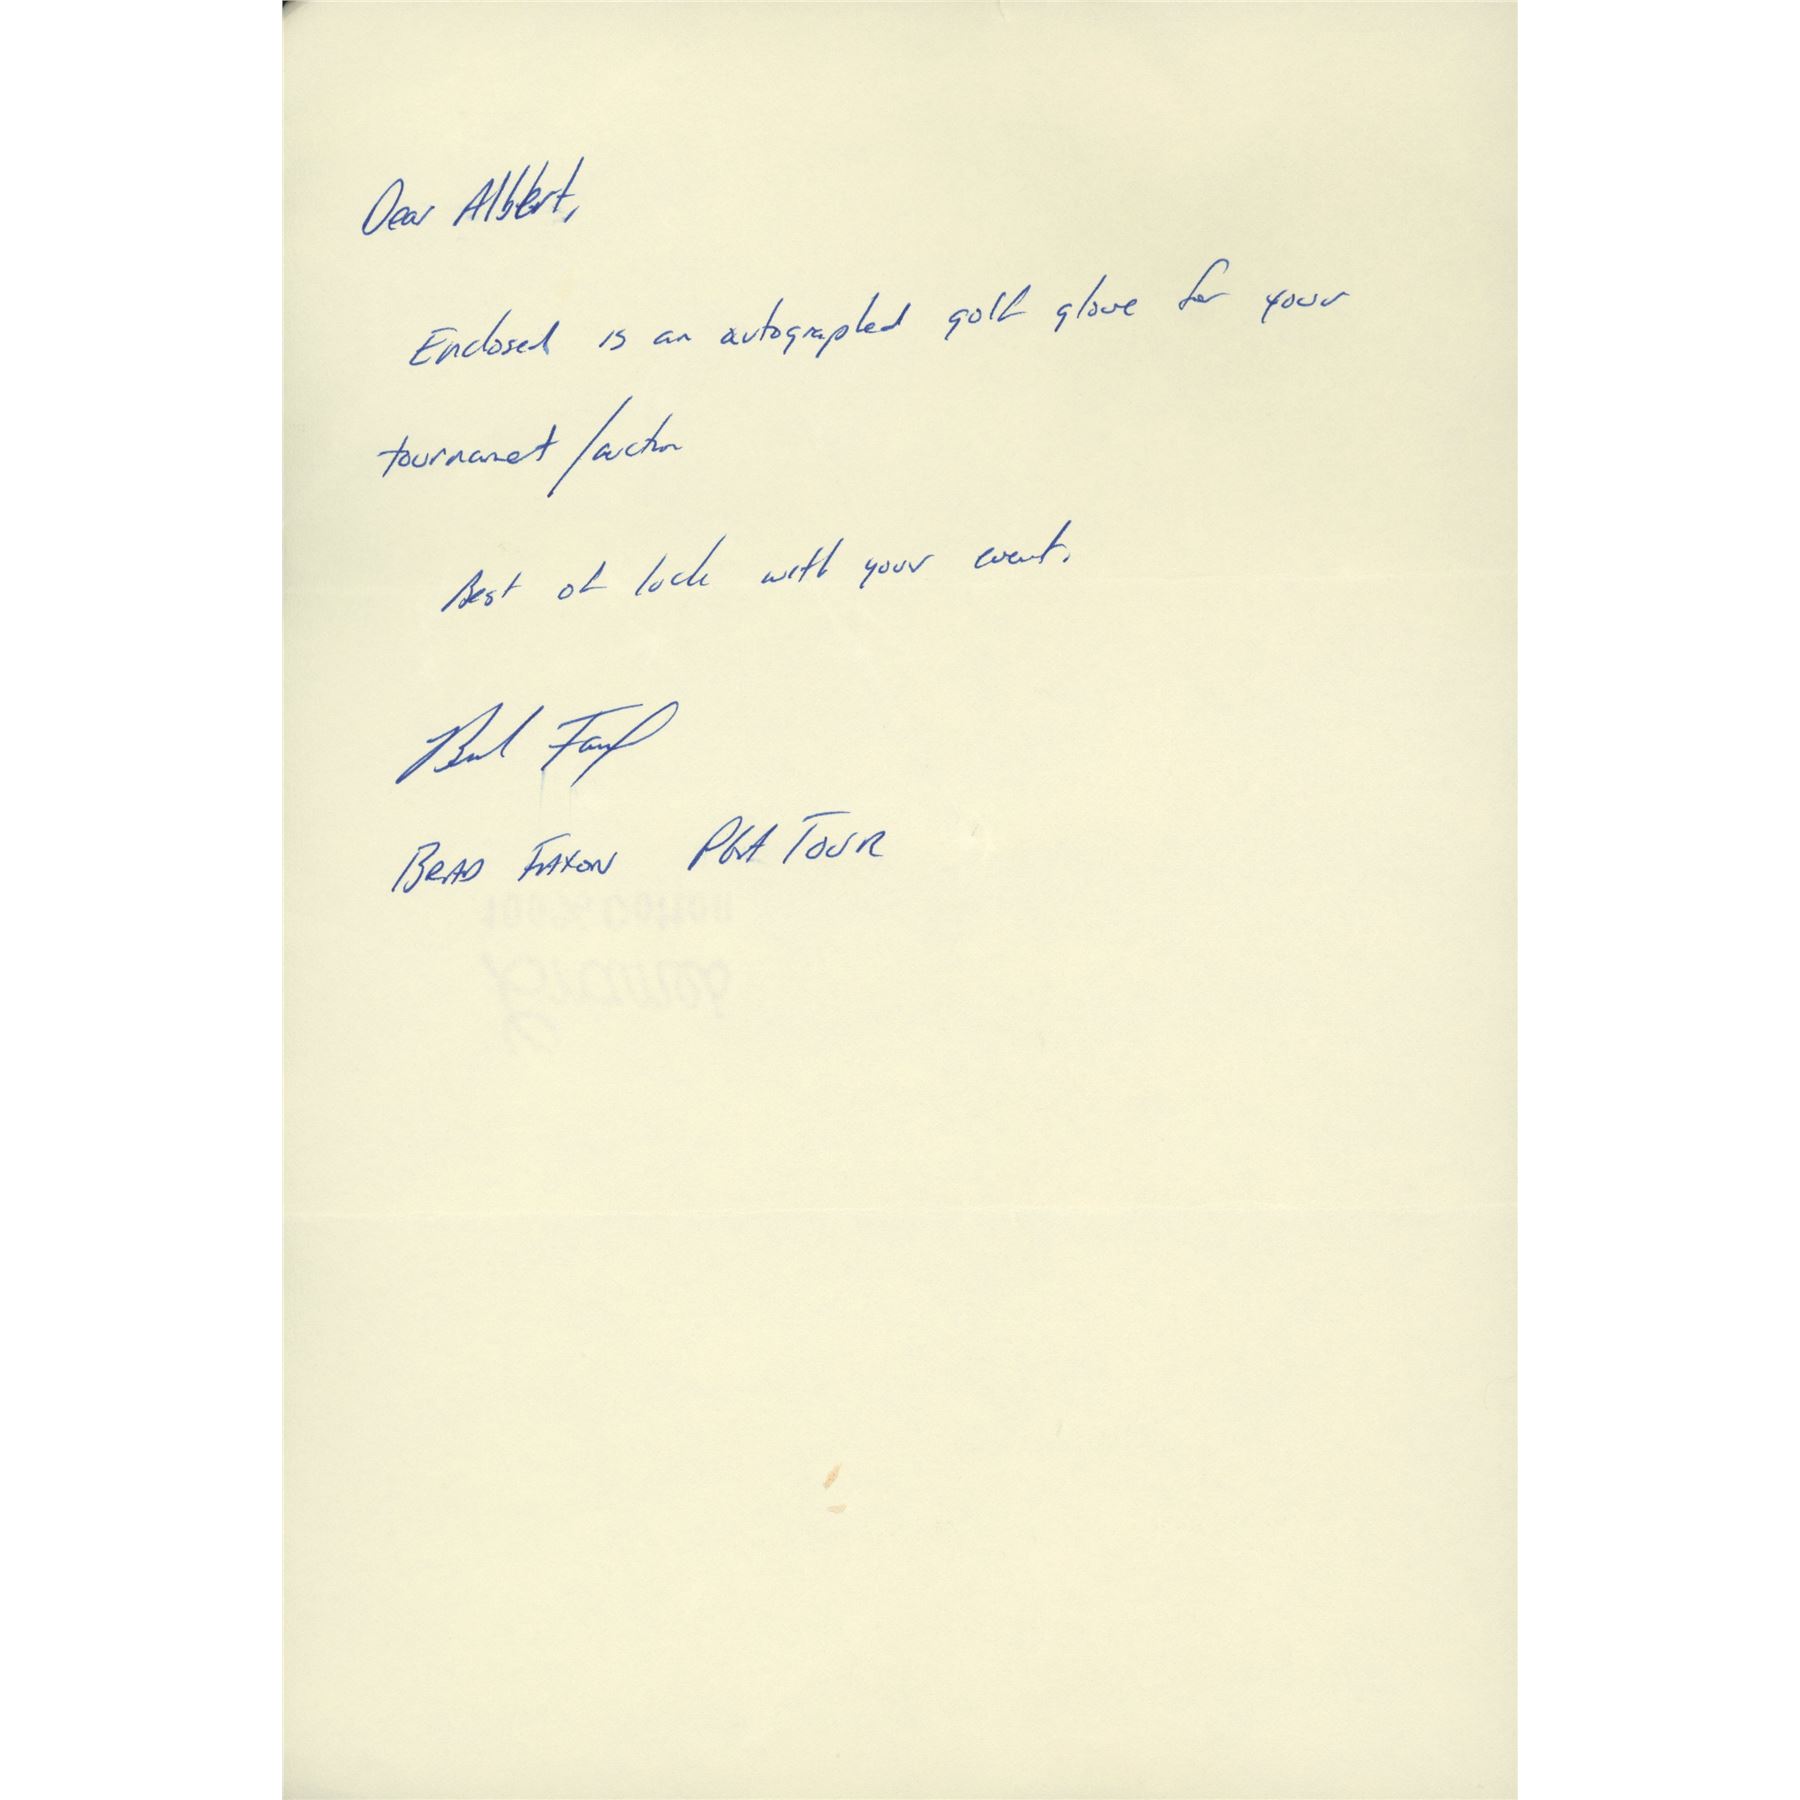 Dear Albert,
Enclosed is an autographed golf glove for your
tournamet /auction
Best of luck with your event.
Brad Faxon
BRAD FAXON PGA TOUR
100% Cotton
Crane's